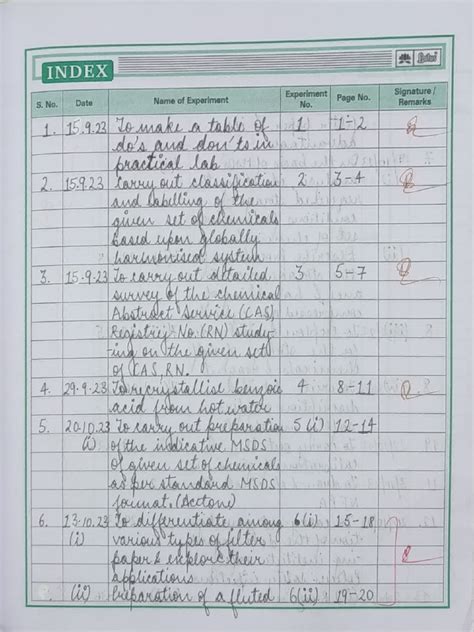 INDEX
S. No. Date Name of Experiment Experiment No. Page No. Signature / Remarks
1. 15.9.23 To make a table of 1 1-2
do's and don'ts in
practical lab
2. 15.9.23 Carry out classification 2 3-4
and labelling of the
given set of chemicals
based upon globally
harmonised system
3. 15.9.23 To carry out detailed 3 5-7
survey of the chemical
Abstract Service (CAS)
Registry No. (RN) study-
ing on the given set
of CAS, RN.
4. 29.9.23 To recrystallise benzoic 4 8-11
acid from hot water
5. 20.10.23 To carry out preparation 5 (i) 12-14
(i) of the indicative MSDS
of given set of chemicals
as per standard MSDS
format. (Acetone)
6. 13.10.23 To differentiate among 6(i) 15-18
(i) various types of filter
paper & explore their
applications
(ii) Preparation of a fluted 6(ii) 19-20